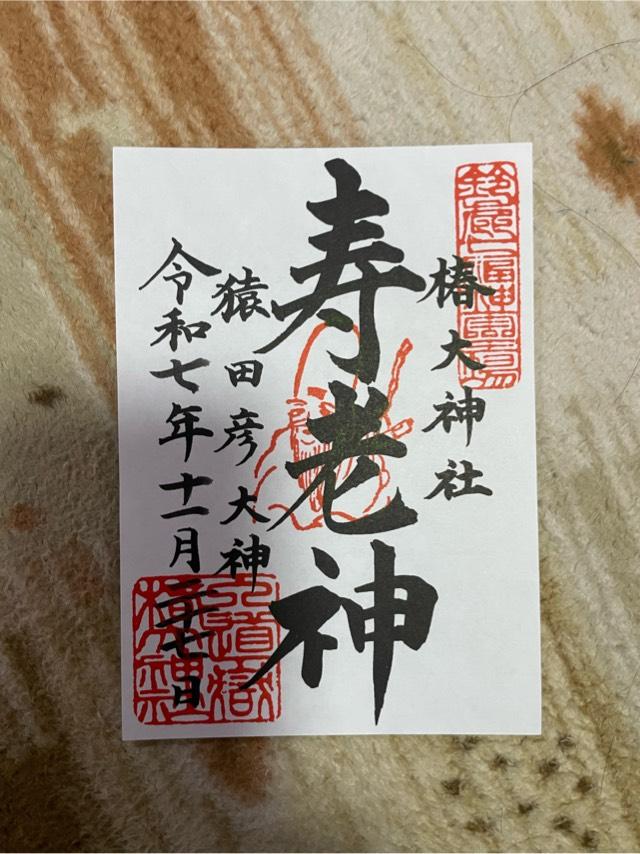 鈴鹿七福神霊場
椿大神社
寿老神
猿田彦大神
令和七年十一月二十七日